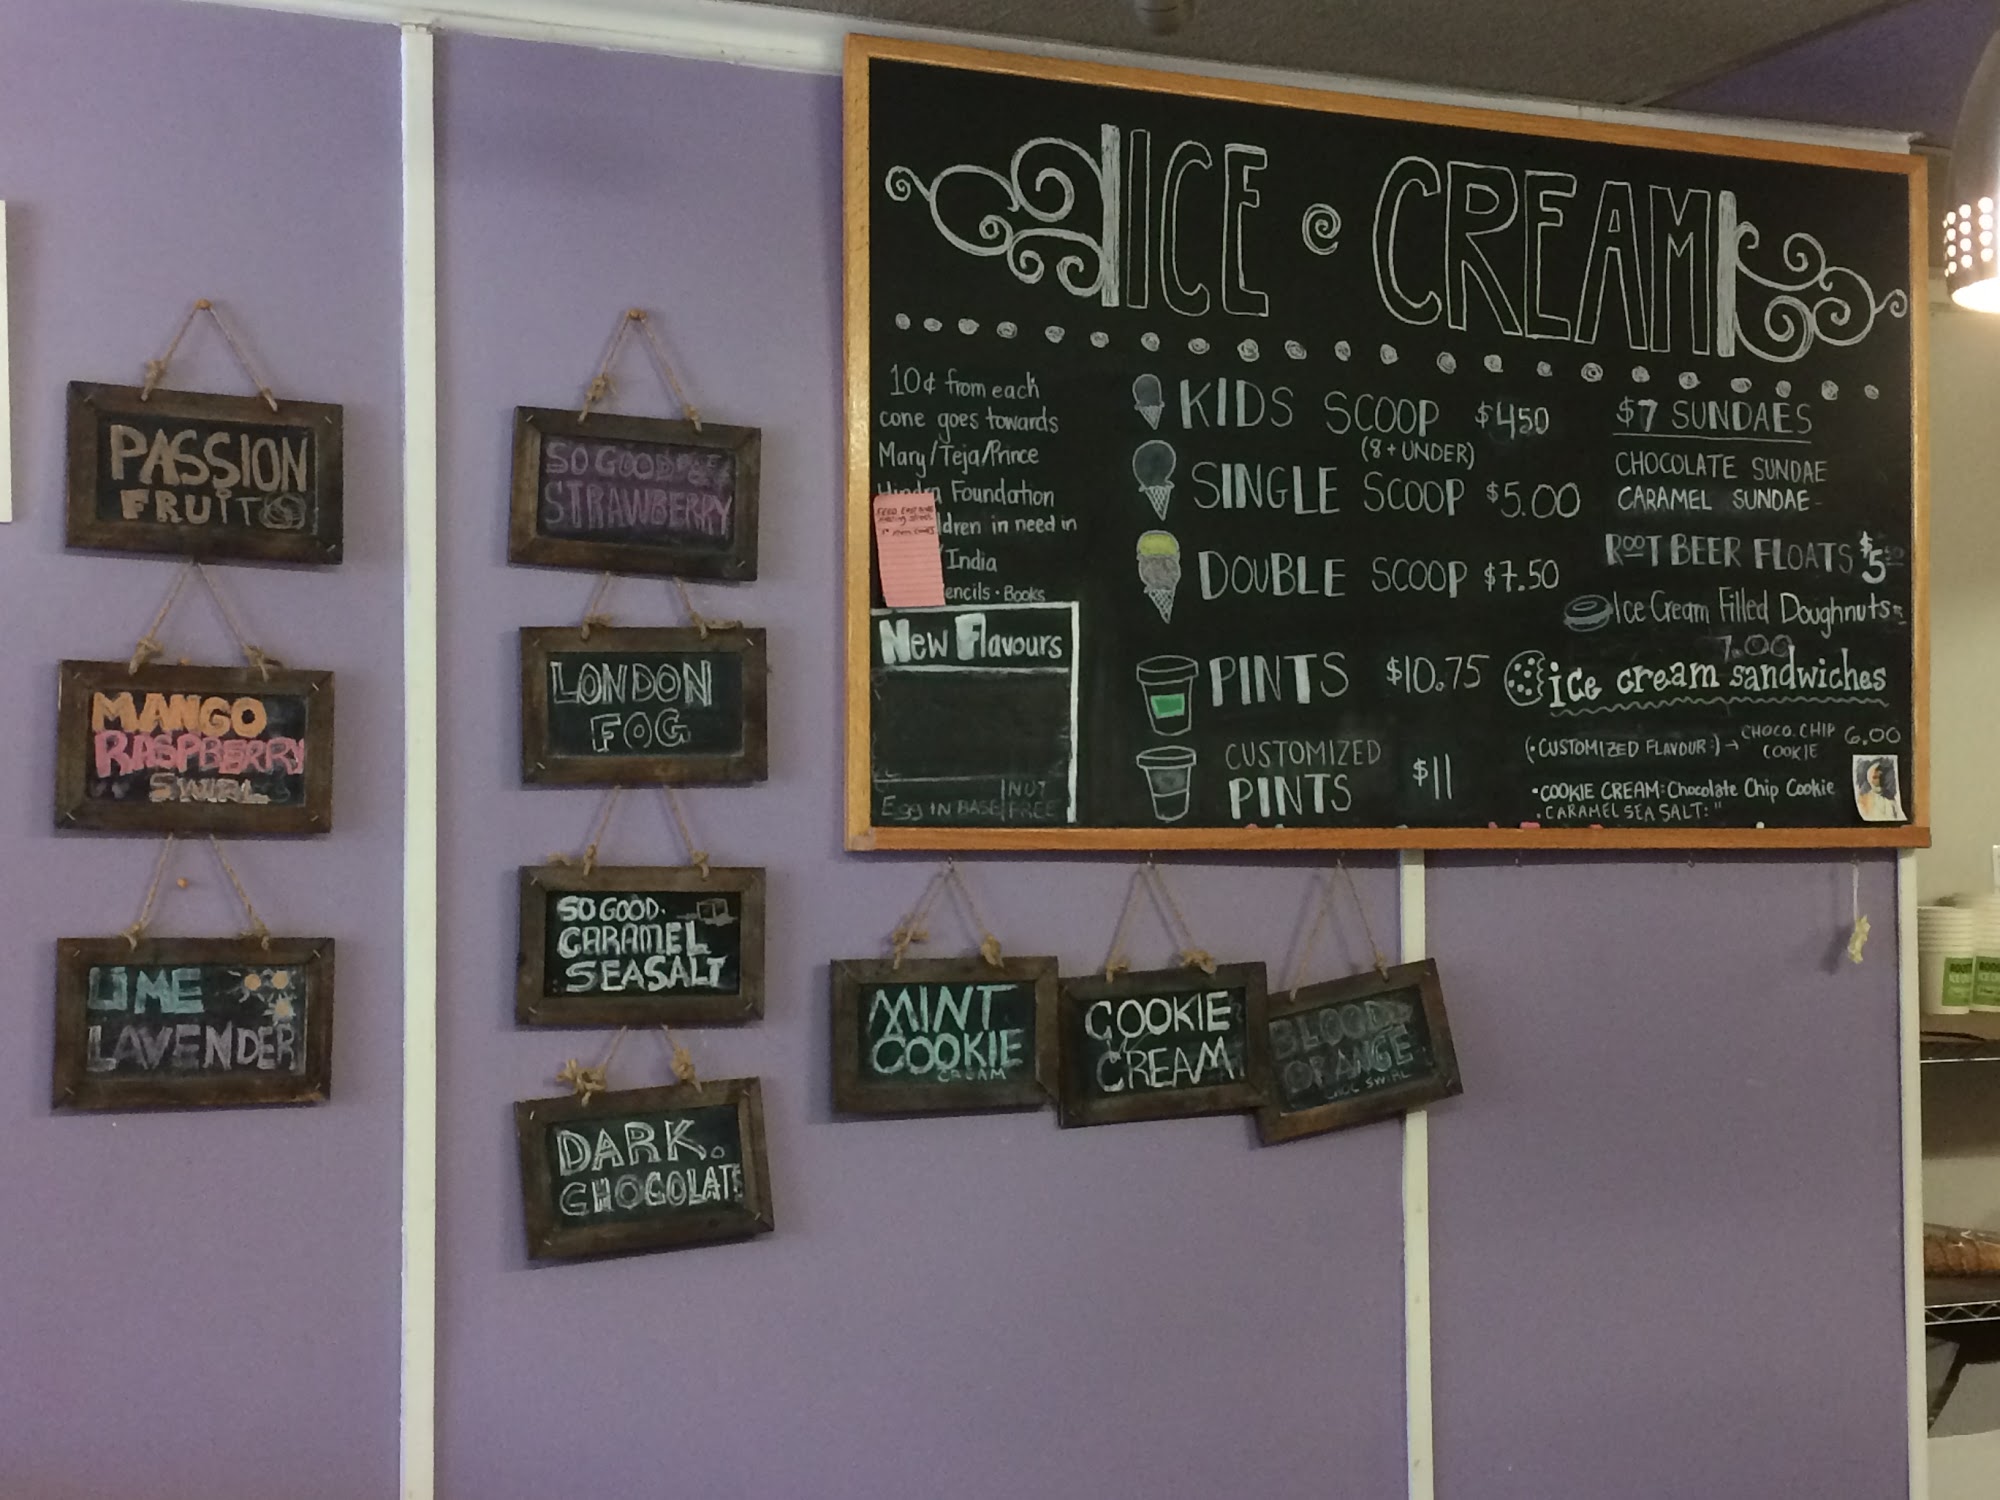 PASSION
FRUIT
MANGO
RASPBERRY
SWIRL
LIME
LAVENDER
SO GOOD
STRAWBERRY
LONDON
FOG
SO GOOD.
CARAMEL
SEASALT
DARK.
CHOCOLATE
ICE CREAM
10¢ from each
cone goes towards
Mary/Teja/Prince
Foundation
dren in need in
India
encils · Books
New Flavours
Egg IN BASE
NUT
FREE
KIDS SCOOP $450
(8 + UNDER)
SINGLE SCOOP $5.00
DOUBLE SCOOP $7.50
PINTS $10.75
CUSTOMIZED
PINTS $11
$7 SUNDAES
CHOCOLATE SUNDAE
CARAMEL SUNDAE
ROOT BEER FLOATS $5
Ice Cream Filled Doughnuts
7.00
ice cream sandwiches
(·CUSTOMIZED FLAVOUR:) → CHOCO. CHIP COOKIE 6.00
·COOKIE CREAM: Chocolate Chip Cookie
·CARAMEL SEA SALT: "
MINT
COOKIE
CREAM
COOKIE
CREAM
BLOOD
ORANGE
SWIRL